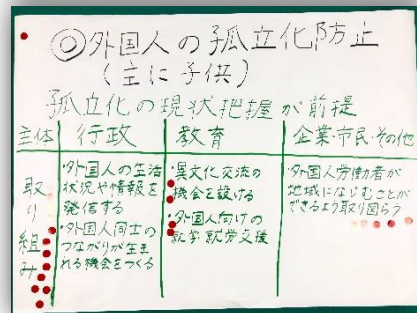 ◎外国人の孤立化防止
(主に子供)
孤立化の現状把握が前提
主体
行政
教育
企業市民・その他
取り組み
・外国人の生活
状況や情報を
発信する
・外国人同士の
つながりが生ま
れる機会をつくる
・異文化交流の
機会を設ける
・外国人向けの
就学就労支援
・外国人労働者が
地域になじむことが
できるよう取り図らう